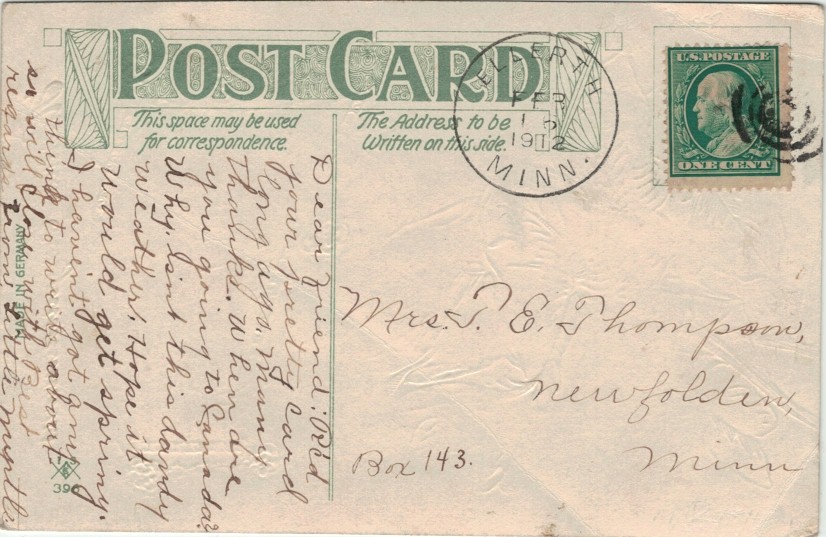 POST CARD
This space may be used
for correspondence.
The Address to be
Written on this side.
ELLERTH
FEB
15
1912
MINN.
U.S. POSTAGE
ONE CENT
Dear Friend: Rc'd
your pretty card
long ago. Many
thanks. When are
you going to Canada?
Why isn't this dandy
weather. Hope it
would get spring.
I havent got any
thing to write about
so will close with best
regards from Little Myrtle
Mrs. T. E. Thompson,
Newfolden,
Minn
Box 143.
MADE IN GERMANY
396